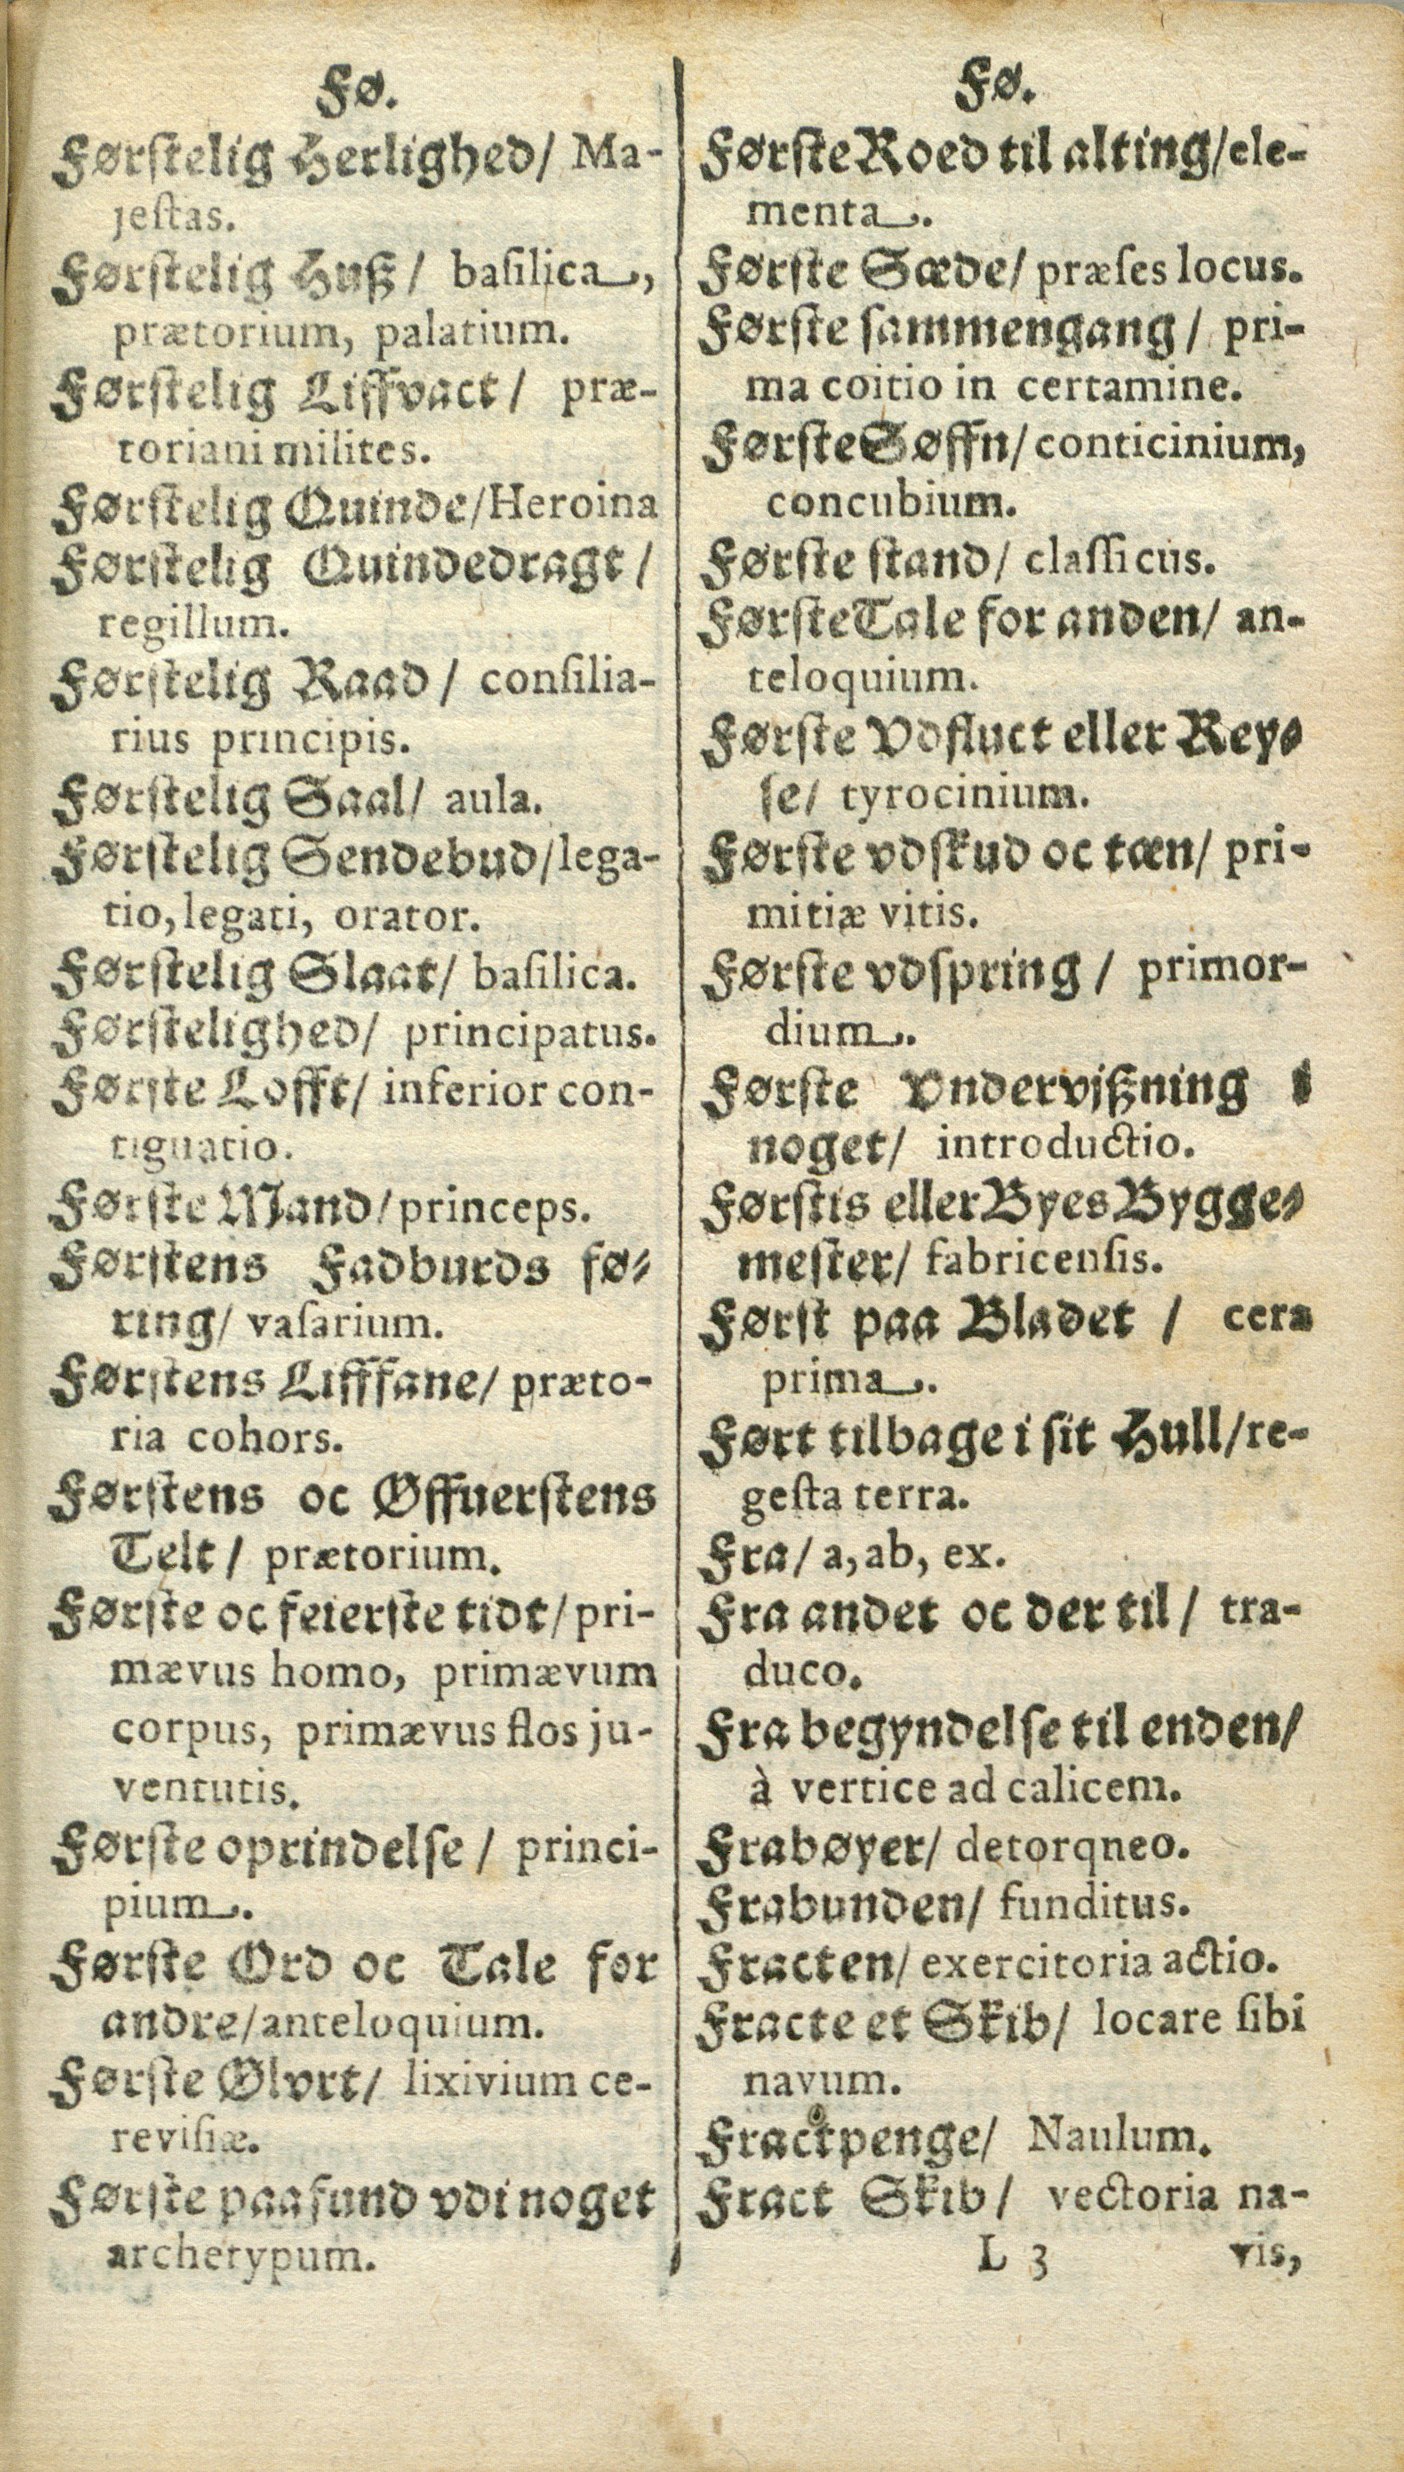 Fø.
Førstelig Herlighed/ Ma-
jestas.
Førstelig Huß/ basilica,
prætorium, palatium.
Førstelig Liffvact/ præ-
toriani milites.
Førstelig Quinde/Heroina
Førstelig Quindedragt/
regillum.
Førstelig Raad/ consilia-
rius principis.
Førstelig Saal/ aula.
Førstelig Sendebud/lega-
tio, legati, orator.
Førstelig Slaat/ basilica.
Førstelighed/ principatus.
Første Lofft/ inferior con-
tignatio.
Første Mand/princeps.
Førstens Fadburds fø-
ring/ vasarium.
Førstens Lifffane/ præto-
ria cohors.
Førstens oc Øffuerstens
Telt/ prætorium.
Første oc feierste tidt/pri-
mævus homo, primævum
corpus, primævus flos ju-
ventutis.
Første oprindelse/ princi-
pium.
Første Ord oc Tale for
andre/anteloquium.
Første Ølvrt/ lixivium ce-
revisiæ.
Første paafund vdi noget
archetypum.
Fø.
Første Roed til alting/ele-
menta.
Første Sæde/ præses locus.
Første sammengang/ pri-
ma coitio in certamine.
Første Søffn/conticinium,
concubium.
Første stand/ classicus.
Første Tale for anden/ an-
teloquium.
Første Vdfluct eller Rey-
se/ tyrocinium.
Første vdskud oc tæn/ pri-
mitiæ vitis.
Første vdspring/ primor-
dium.
Første Vndervißning i
noget/ introductio.
Førstis eller Byes Bygge-
mester/ fabricensis.
Først paa Bladet/ cera
prima.
Ført tilbage i sit Hull/re-
gesta terra.
Fra/ a, ab, ex.
Fra andet oc der til/ tra-
duco.
Fra begyndelse til enden/
à vertice ad calicem.
Frabøyer/ detorqneo.
Frabunden/ funditus.
Fracten/ exercitoria actio.
Fracte et Skib/ locare sibi
navum.
Fractpenge/ Naulum.
Fract Skib/ vectoria na-
L 3 vis,